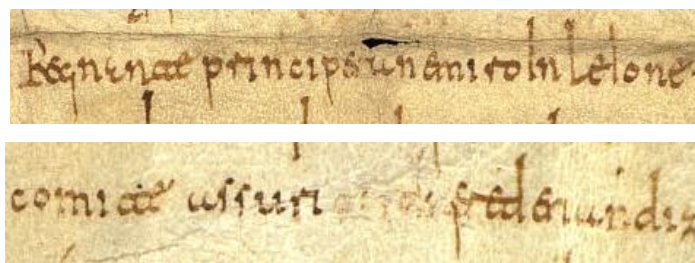 Regnante principe ranemiro In legione
comite assuri fredenandiz